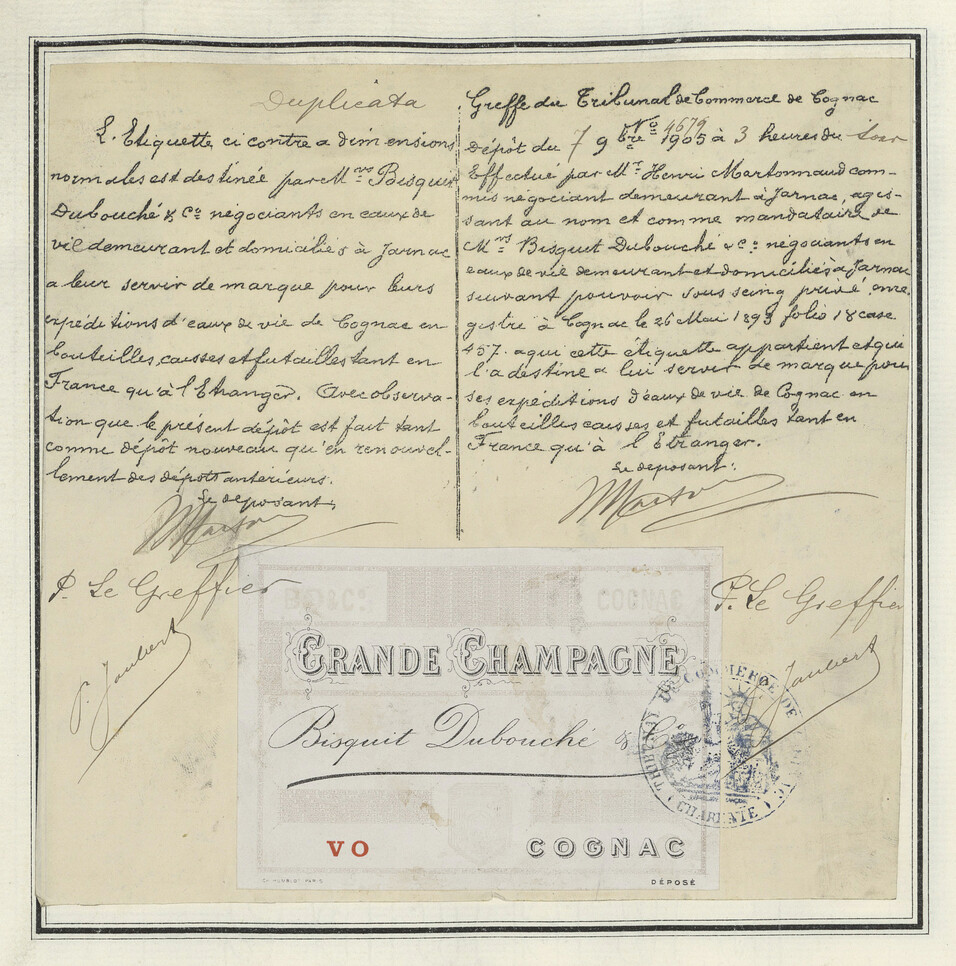 Duplicata
L'Etiquette ci contre a dimensions
normales est destinée par Mrs Bisquit
Dubouché & Co négociants en eaux de
vie demeurant et domiciliés à Jarnac
a leur servir de marque pour leurs
expéditions d'eaux de vie de Cognac en
bouteilles, caisses et futailles tant en
France qu'à l'Etranger. Avec observa-
tion que le présent dépôt est fait tant
comme dépôt nouveau qu'en renouvel-
lement des dépôts antérieurs.
Le deposant:
P. Le Greffier
P. Jaubert
Greffe du Tribunal de Commerce de Cognac
No 4679
Dépôt du 7 9bre 1905 à 3 heures du soir
Effectué par Mr Henri Martonnaud com-
mis négociant demeurant à Jarnac, agis-
sant au nom et comme mandataire de
Mrs Bisquit Dubouché & Co négociants en
eaux de vie demeurant et domiciliés à Jarnac
suivant pouvoir sous seing privé enre-
gistré à Cognac le 26 Mai 1893 folio 18 case
457. a qui cette étiquette appartient et qui
l'a destine a lui servir de marque pour
ses expeditions d'eaux de vie de Cognac en
bouteilles caisses et futailles tant en
France qu'à l'Etranger.
Le deposant:
P. Le Greffier
Jaubert
B D & Co
COGNAC
GRANDE CHAMPAGNE
Bisquit Dubouché & Co
VO COGNAC
DÉPOSÉ
TRIBUNAL DE COMMERCE DE COGNAC
(CHARENTE)